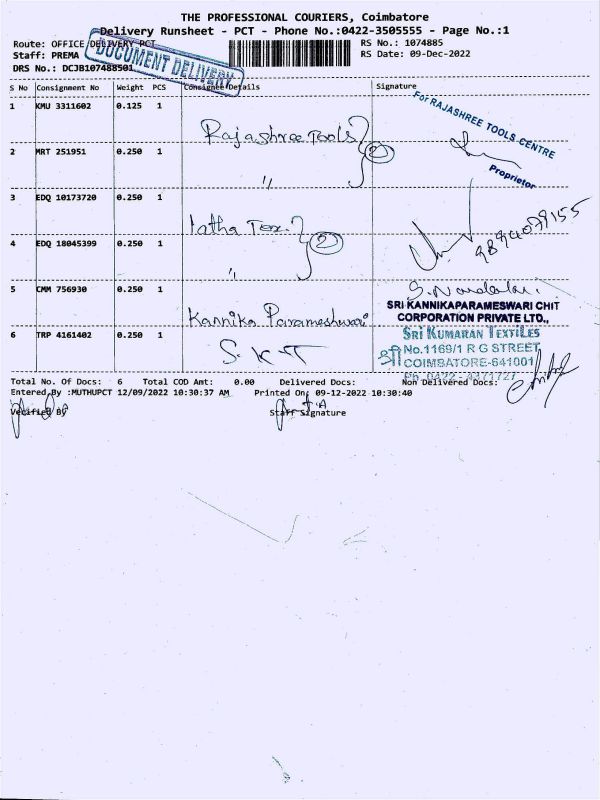 THE PROFESSIONAL COURIERS, Coimbatore
Delivery Runsheet - PCT - Phone No.:0422-3505555 - Page No.:1
Route: OFFICE DELIVERY PCT
RS No.: 1074885
Staff: PREMA
RS Date: 09-Dec-2022
DRS No.: DCJB107488501
DOCUMENT DELIVERY
S No Consignment No Weight PCS Consignee Details Signature
1 KMU 3311602 0.125 1 Rajashree Tools
For RAJASHREE TOOLS CENTRE
Proprietor
2 MRT 251951 0.250 1 〃
2
3 EDQ 10173720 0.250 1 latha Tex.
9894079155
4 EDQ 18045399 0.250 1 〃
2
5 CMM 756930 0.250 1 Kannika Parameshwari
SRI KANNIKAPARAMESWARI CHIT
CORPORATION PRIVATE LTD.,
6 TRP 4161402 0.250 1 S.K.T
SRI KUMARAN TEXTILES
No.1169/1 R G STREET,
COIMBATORE-641001
Ph 0422-4371727
Total No. Of Docs: 6 Total COD Amt: 0.00 Delivered Docs: Non Delivered Docs:
Entered By :MUTHUPCT 12/09/2022 10:30:37 AM Printed On: 09-12-2022 10:30:40
Verified By Staff Signature